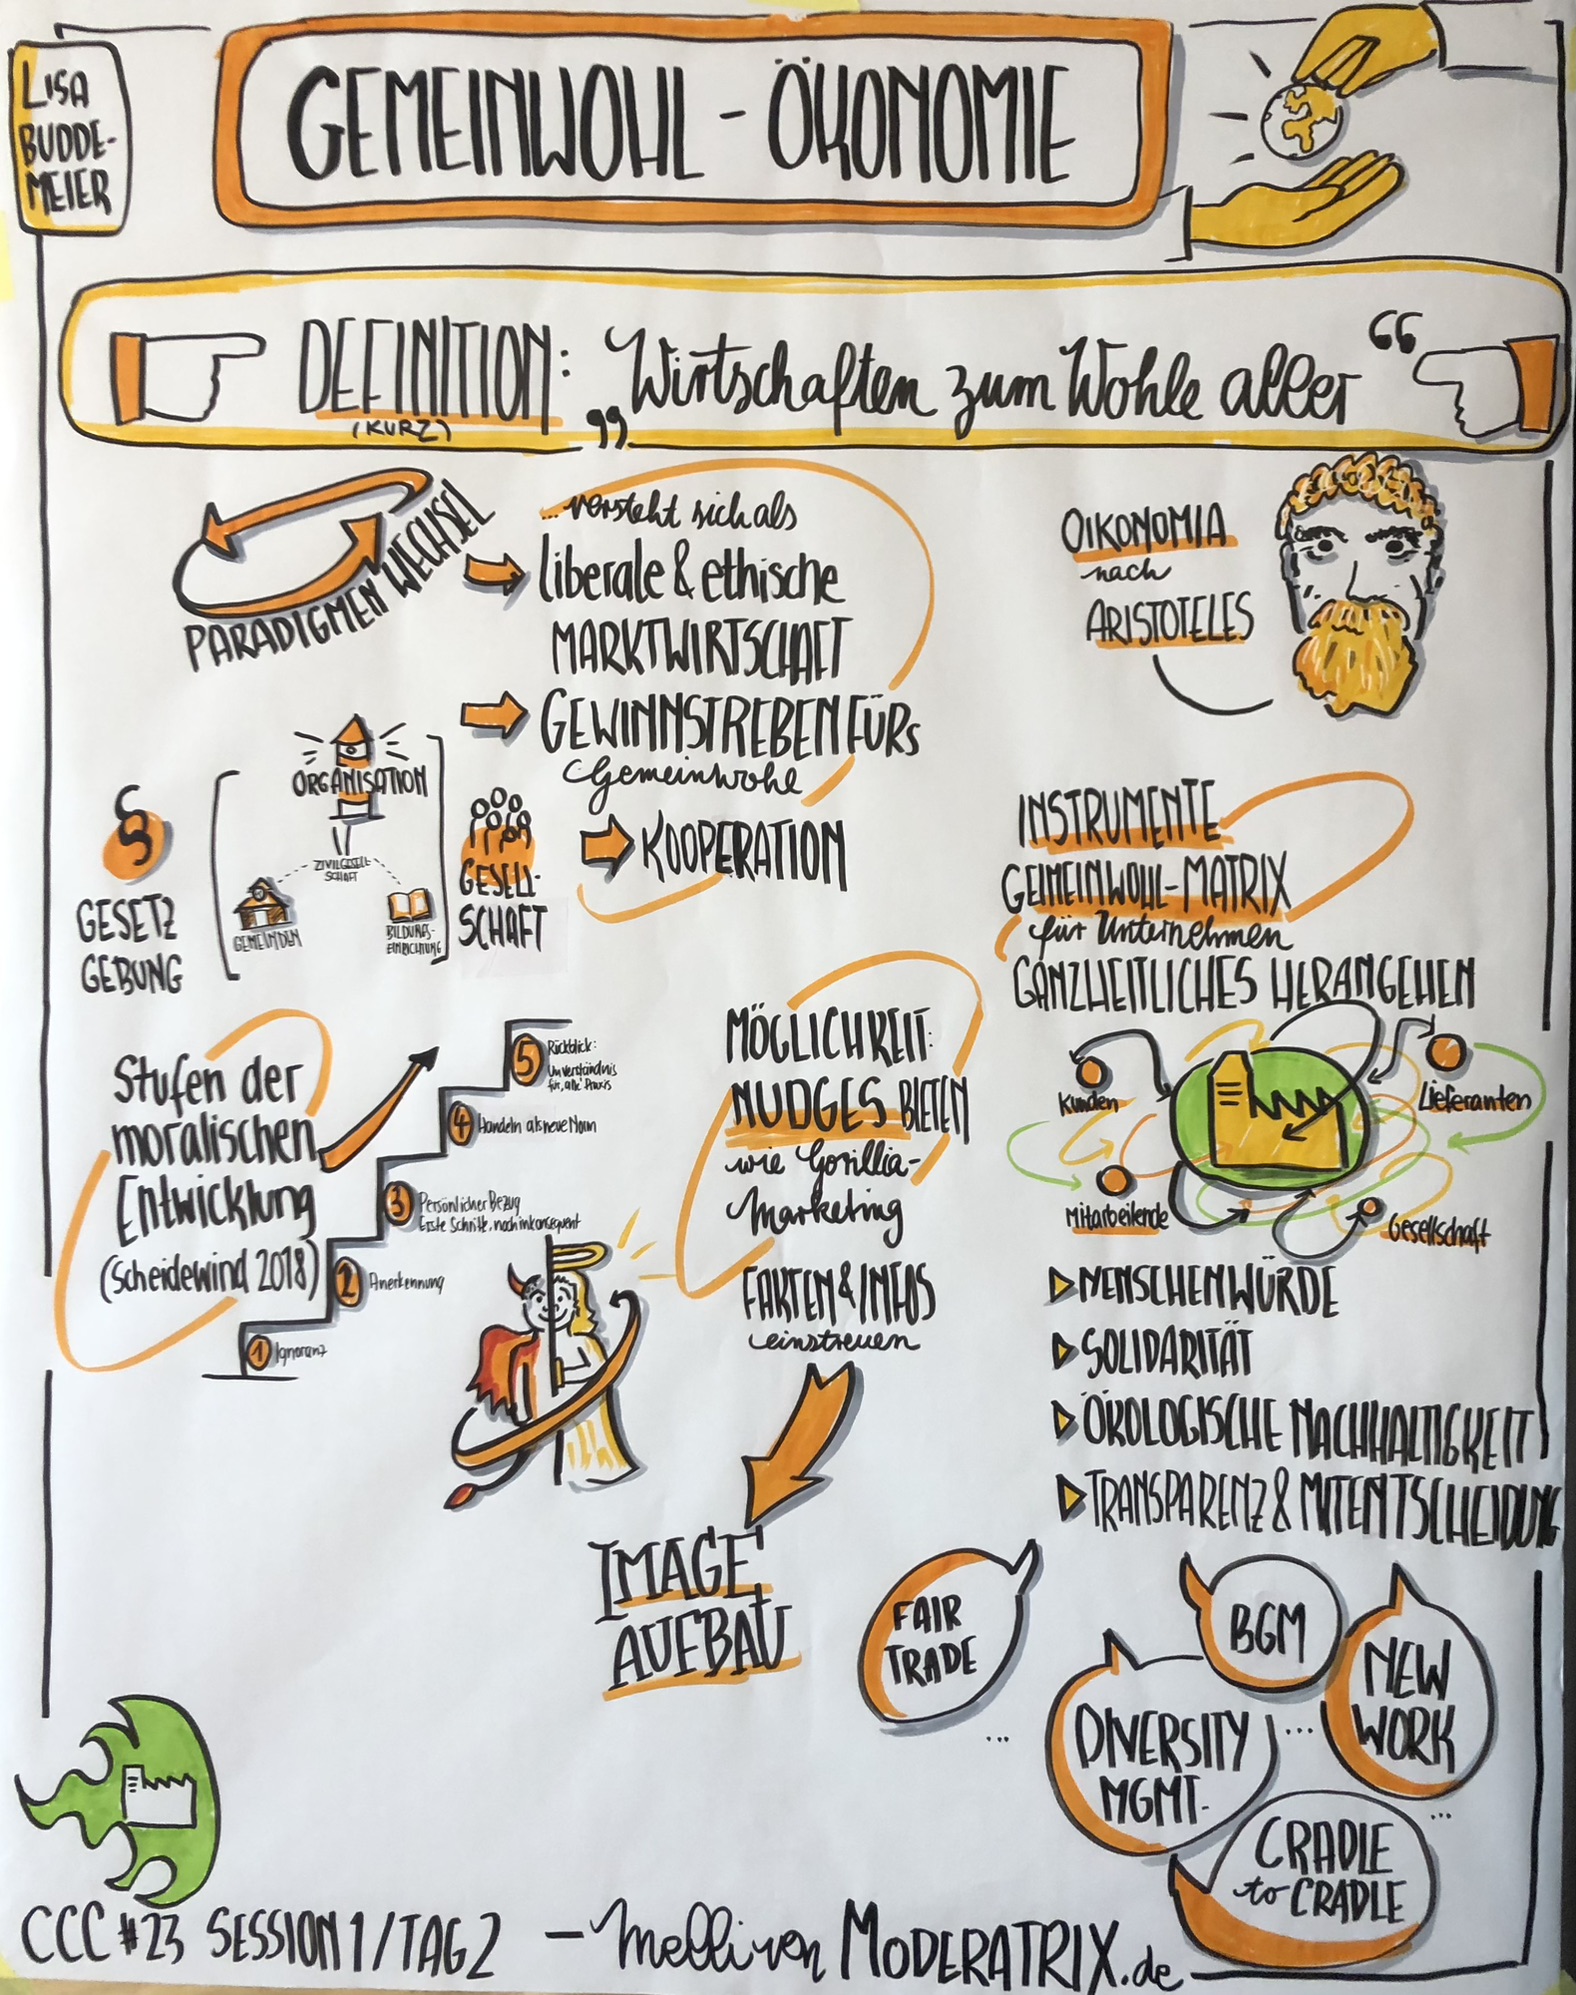 LISA
BUDDE-
MEIER
GEMEINWOHL - ÖKONOMIE
DEFINITION: „Wirtschaften zum Wohle aller“
(KURZ)
PARADIGMEN WECHSEL
...versteht sich als
liberale & ethische
MARKTWIRTSCHAFT
GEWINNSTREBEN FÜRs
Gemeinwohl
KOOPERATION
OIKONOMIA
nach
ARISTOTELES
§
GESETZ
GEBUNG
ORGANISATION
ZIVILGESELL-
SCHAFT
GEMEINDEN
BILDUNGS-
EINRICHTUNG
GESELL-
SCHAFT
INSTRUMENTE
GEMEINWOHL-MATRIX
für Unternehmen
GANZHEITLICHES HERANGEHEN
Kunden
Lieferanten
Mitarbeitende
Gesellschaft
MENSCHENWÜRDE
SOLIDARITÄT
ÖKOLOGISCHE NACHHALTIGKEIT
TRANSPARENZ & MITENTSCHEIDUNG
Stufen der
moralischen
Entwicklung
(Scheidewind 2018)
5 Rückblick:
Unverständnis
für „alte“ Praxis
4 Handeln als neue Norm
3 Persönlicher Bezug
Erste Schritte, noch inkonsequent
2 Anerkennung
1 Ignoranz
MÖGLICHKEIT:
NUDGES BIETEN
wie Gorillia-
Marketing
FAKTEN & INFOS
einstreuen
IMAGE
AUFBAU
FAIR
TRADE
...
BGM
NEW
WORK
DIVERSITY
MGMT.
...
...
CRADLE
to CRADLE
CCC #23 SESSION 1 / TAG 2 – Melli von MODERATRIX.de